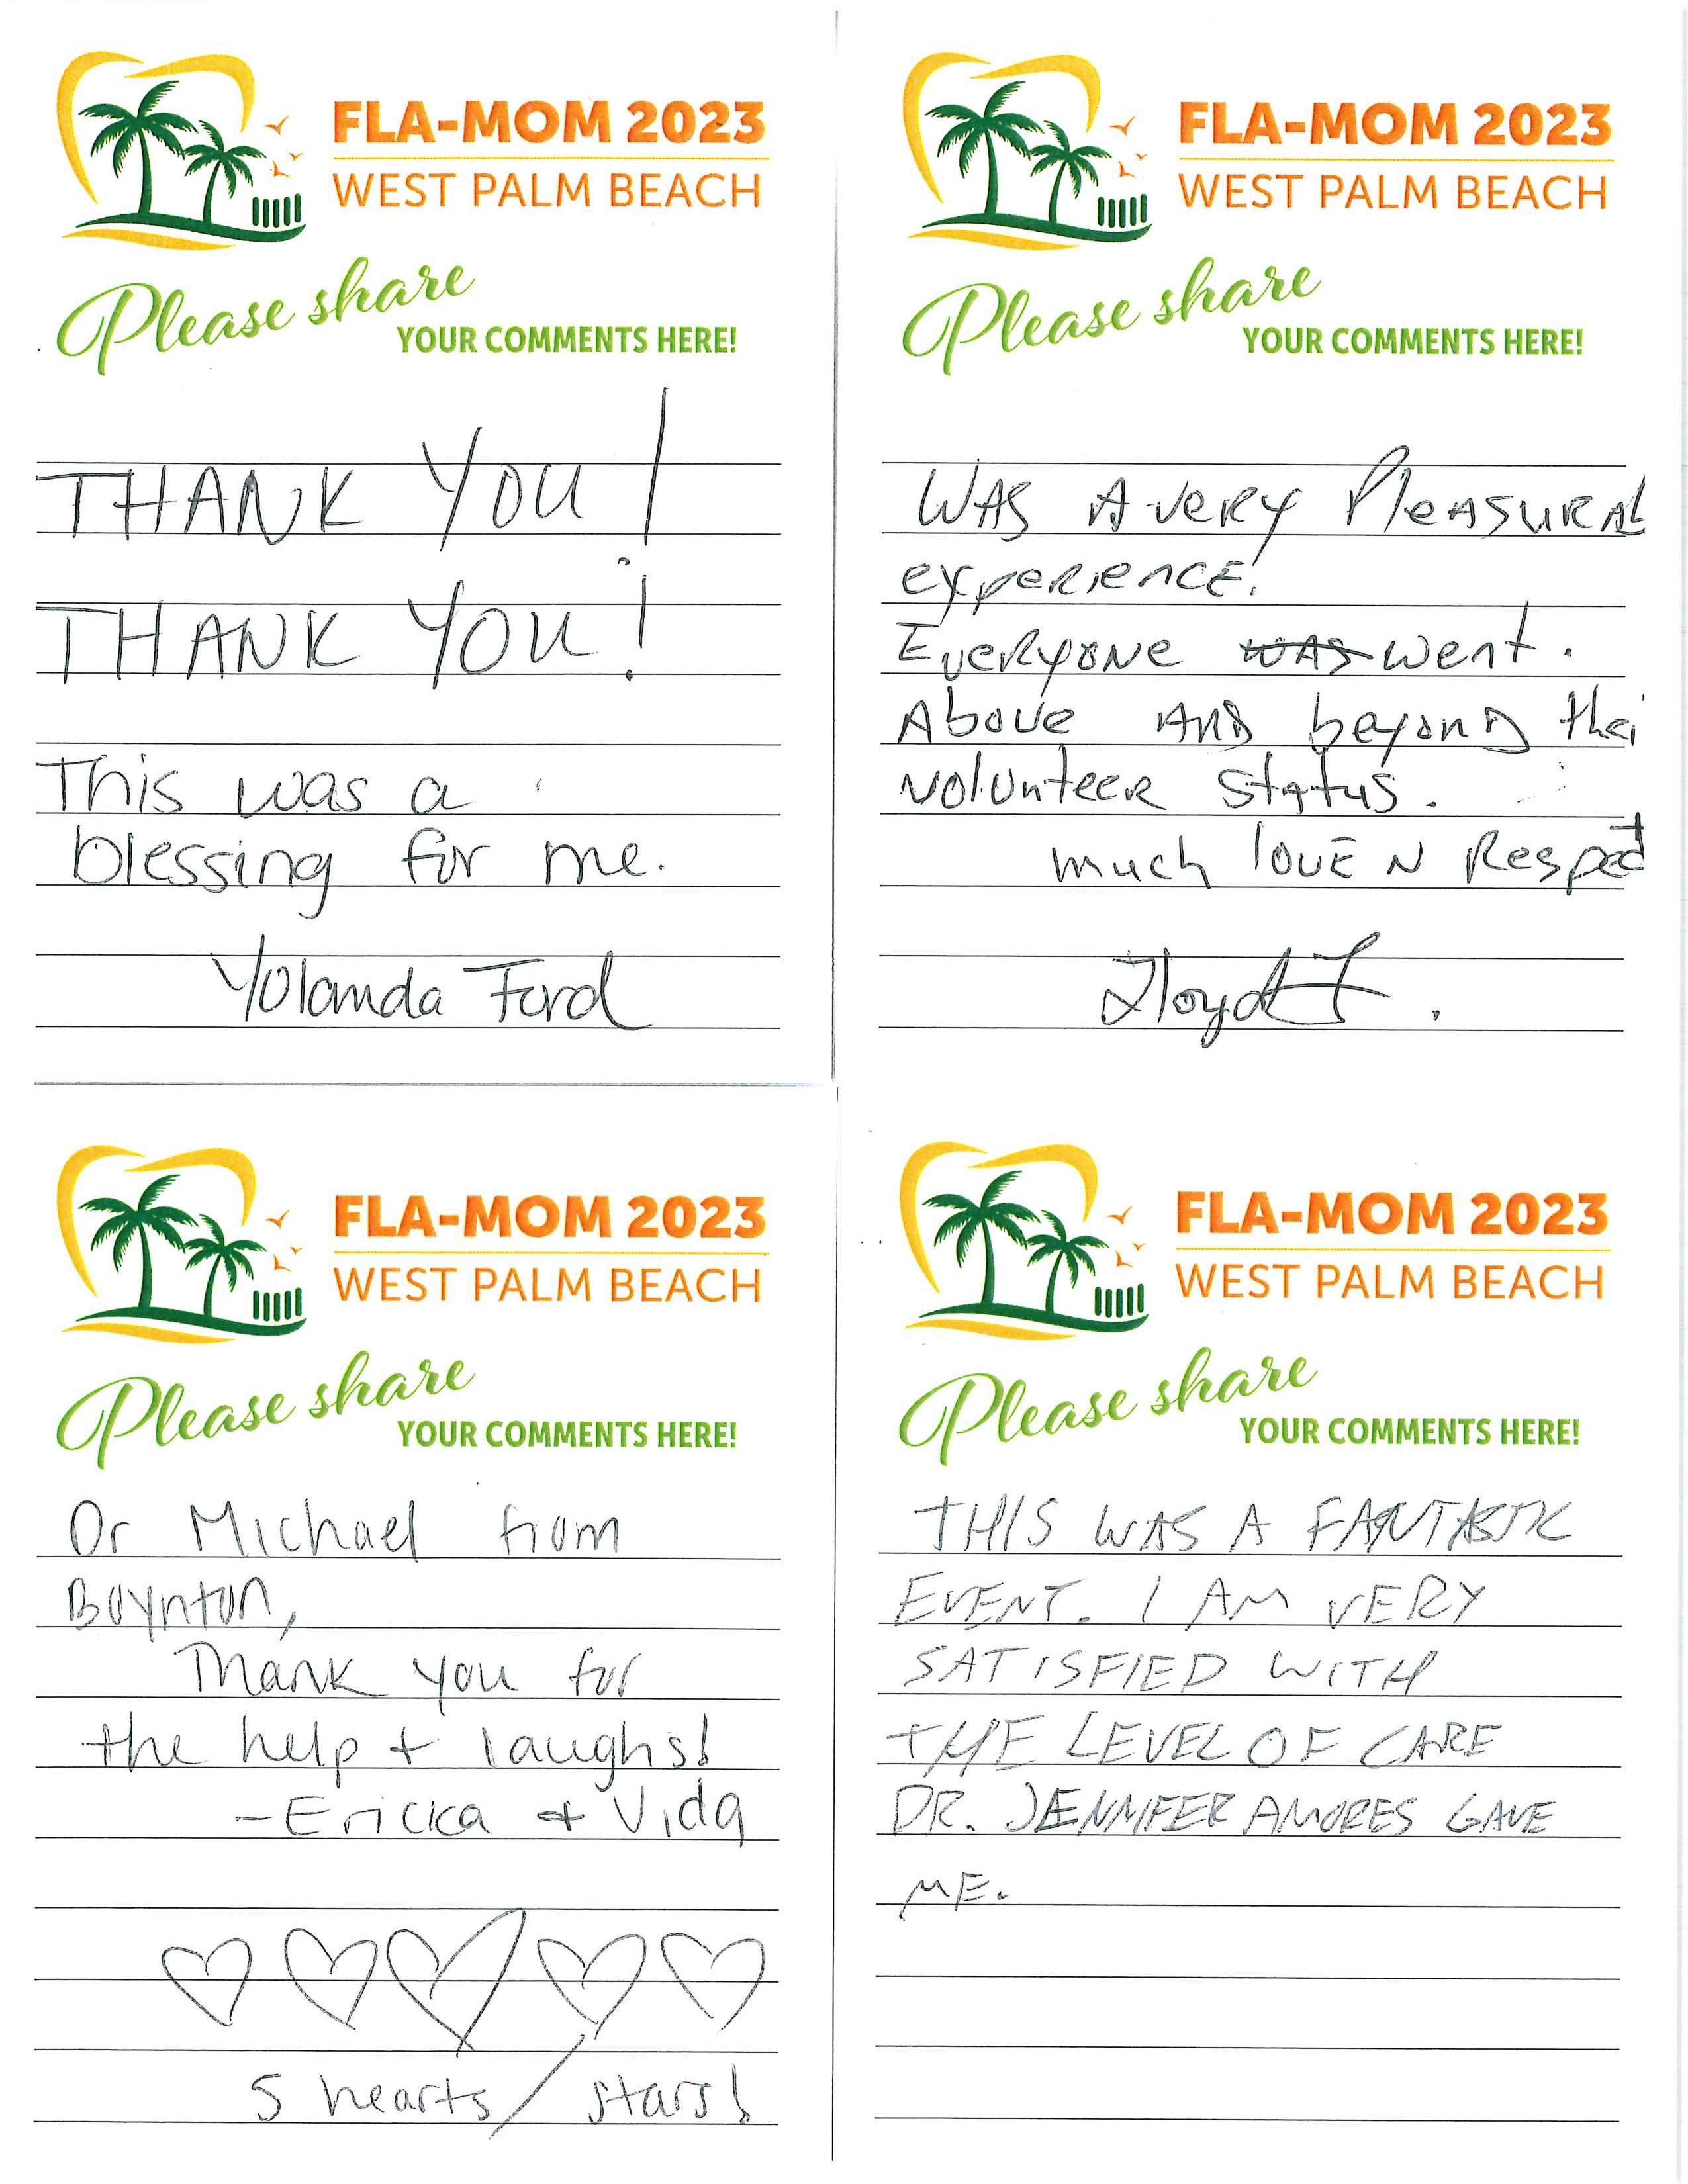 FLA-MOM 2023
WEST PALM BEACH
Please share
YOUR COMMENTS HERE!
THANK YOU!
THANK YOU!
This was a
blessing for me.
Yolanda Ford
FLA-MOM 2023
WEST PALM BEACH
Please share
YOUR COMMENTS HERE!
WAS A very Pleasural
experience.
Everyone was went.
Above AND beyond thei
volunteer status.
much love N Respect
Lloyd F.
FLA-MOM 2023
WEST PALM BEACH
Please share
YOUR COMMENTS HERE!
Dr Michael from
Boynton,
Thank you for
the help + laughs!
- Ericka + Vida
5 hearts/stars!
FLA-MOM 2023
WEST PALM BEACH
Please share
YOUR COMMENTS HERE!
THIS WAS A FANTASTIC
EVENT. I AM VERY
SATISFIED WITH
THE LEVEL OF CARE
DR. JENNIFER AMORES GAVE
ME.